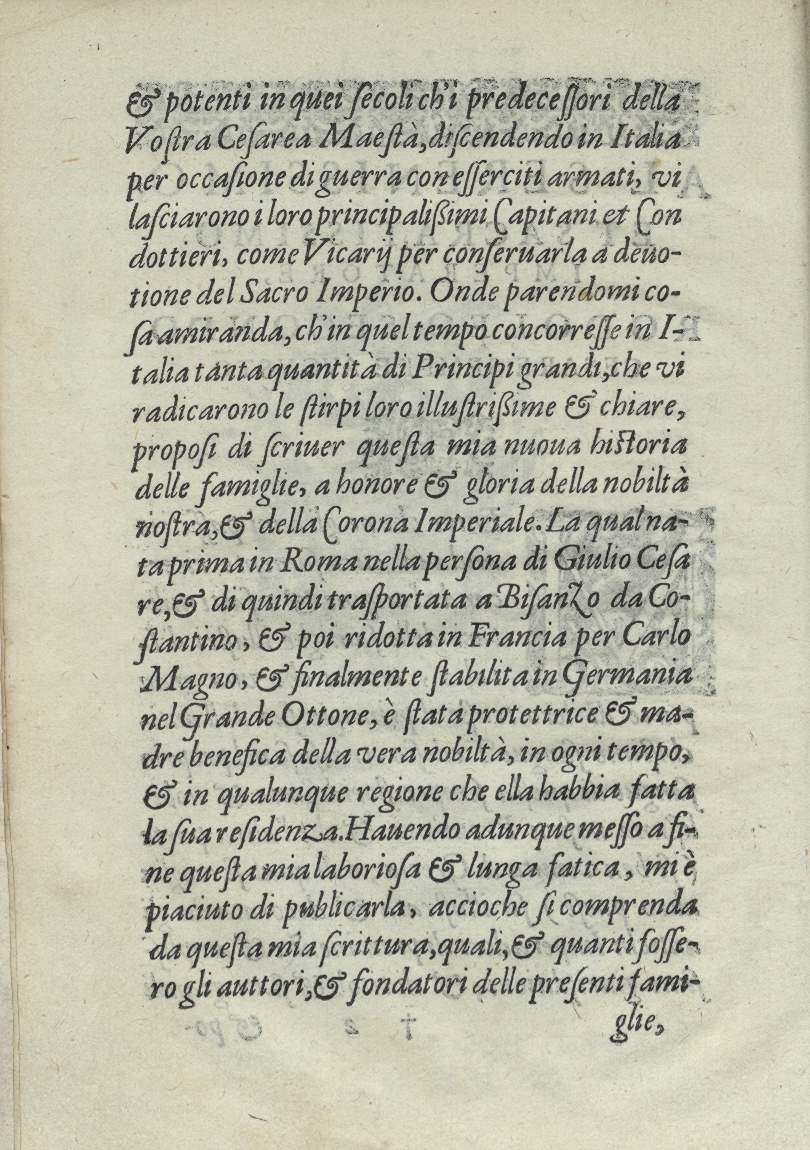 & potenti in quei ſecoli ch'i predeceſſori della
Voſtra Ceſarea Maeſtà, diſcendendo in Italia
per occaſione di guerra con eſſerciti armati, vi
laſciarono i loro principalißimi Capitani et Con
dottieri, come Vicarij per conſeruarla a deuo-
tione del Sacro Imperio. Onde parendomi co-
ſa amiranda, ch'in quel tempo concorreſſe in I-
talia tanta quantità di Principi grandi, che vi
radicarono le ſtirpi loro illuſtrißime & chiare,
propoſi di ſcriuer queſta mia nuoua hiſtoria
delle famiglie, a honore & gloria della nobiltà
noſtra, & della Corona Imperiale. La qual na-
ta prima in Roma nella perſona di Giulio Ceſa
re, & di quindi traſportata a Biſanzo da Co-
ſtantino, & poi ridotta in Francia per Carlo
Magno, & finalmente ſtabilita in Germania
nel Grande Ottone, è ſtata protettrice & ma-
dre benefica della vera nobiltà, in ogni tempo,
& in qualunque regione che ella habbia fatta
la ſua reſidenza. Hauendo adunque meſſo a fi-
ne queſta mia laborioſa & lunga fatica, mi è
piaciuto di publicarla, accioche ſi comprenda
da queſta mia ſcrittura, quali, & quanti foſſe-
ro gli auttori, & fondatori delle preſenti fami-
glie,